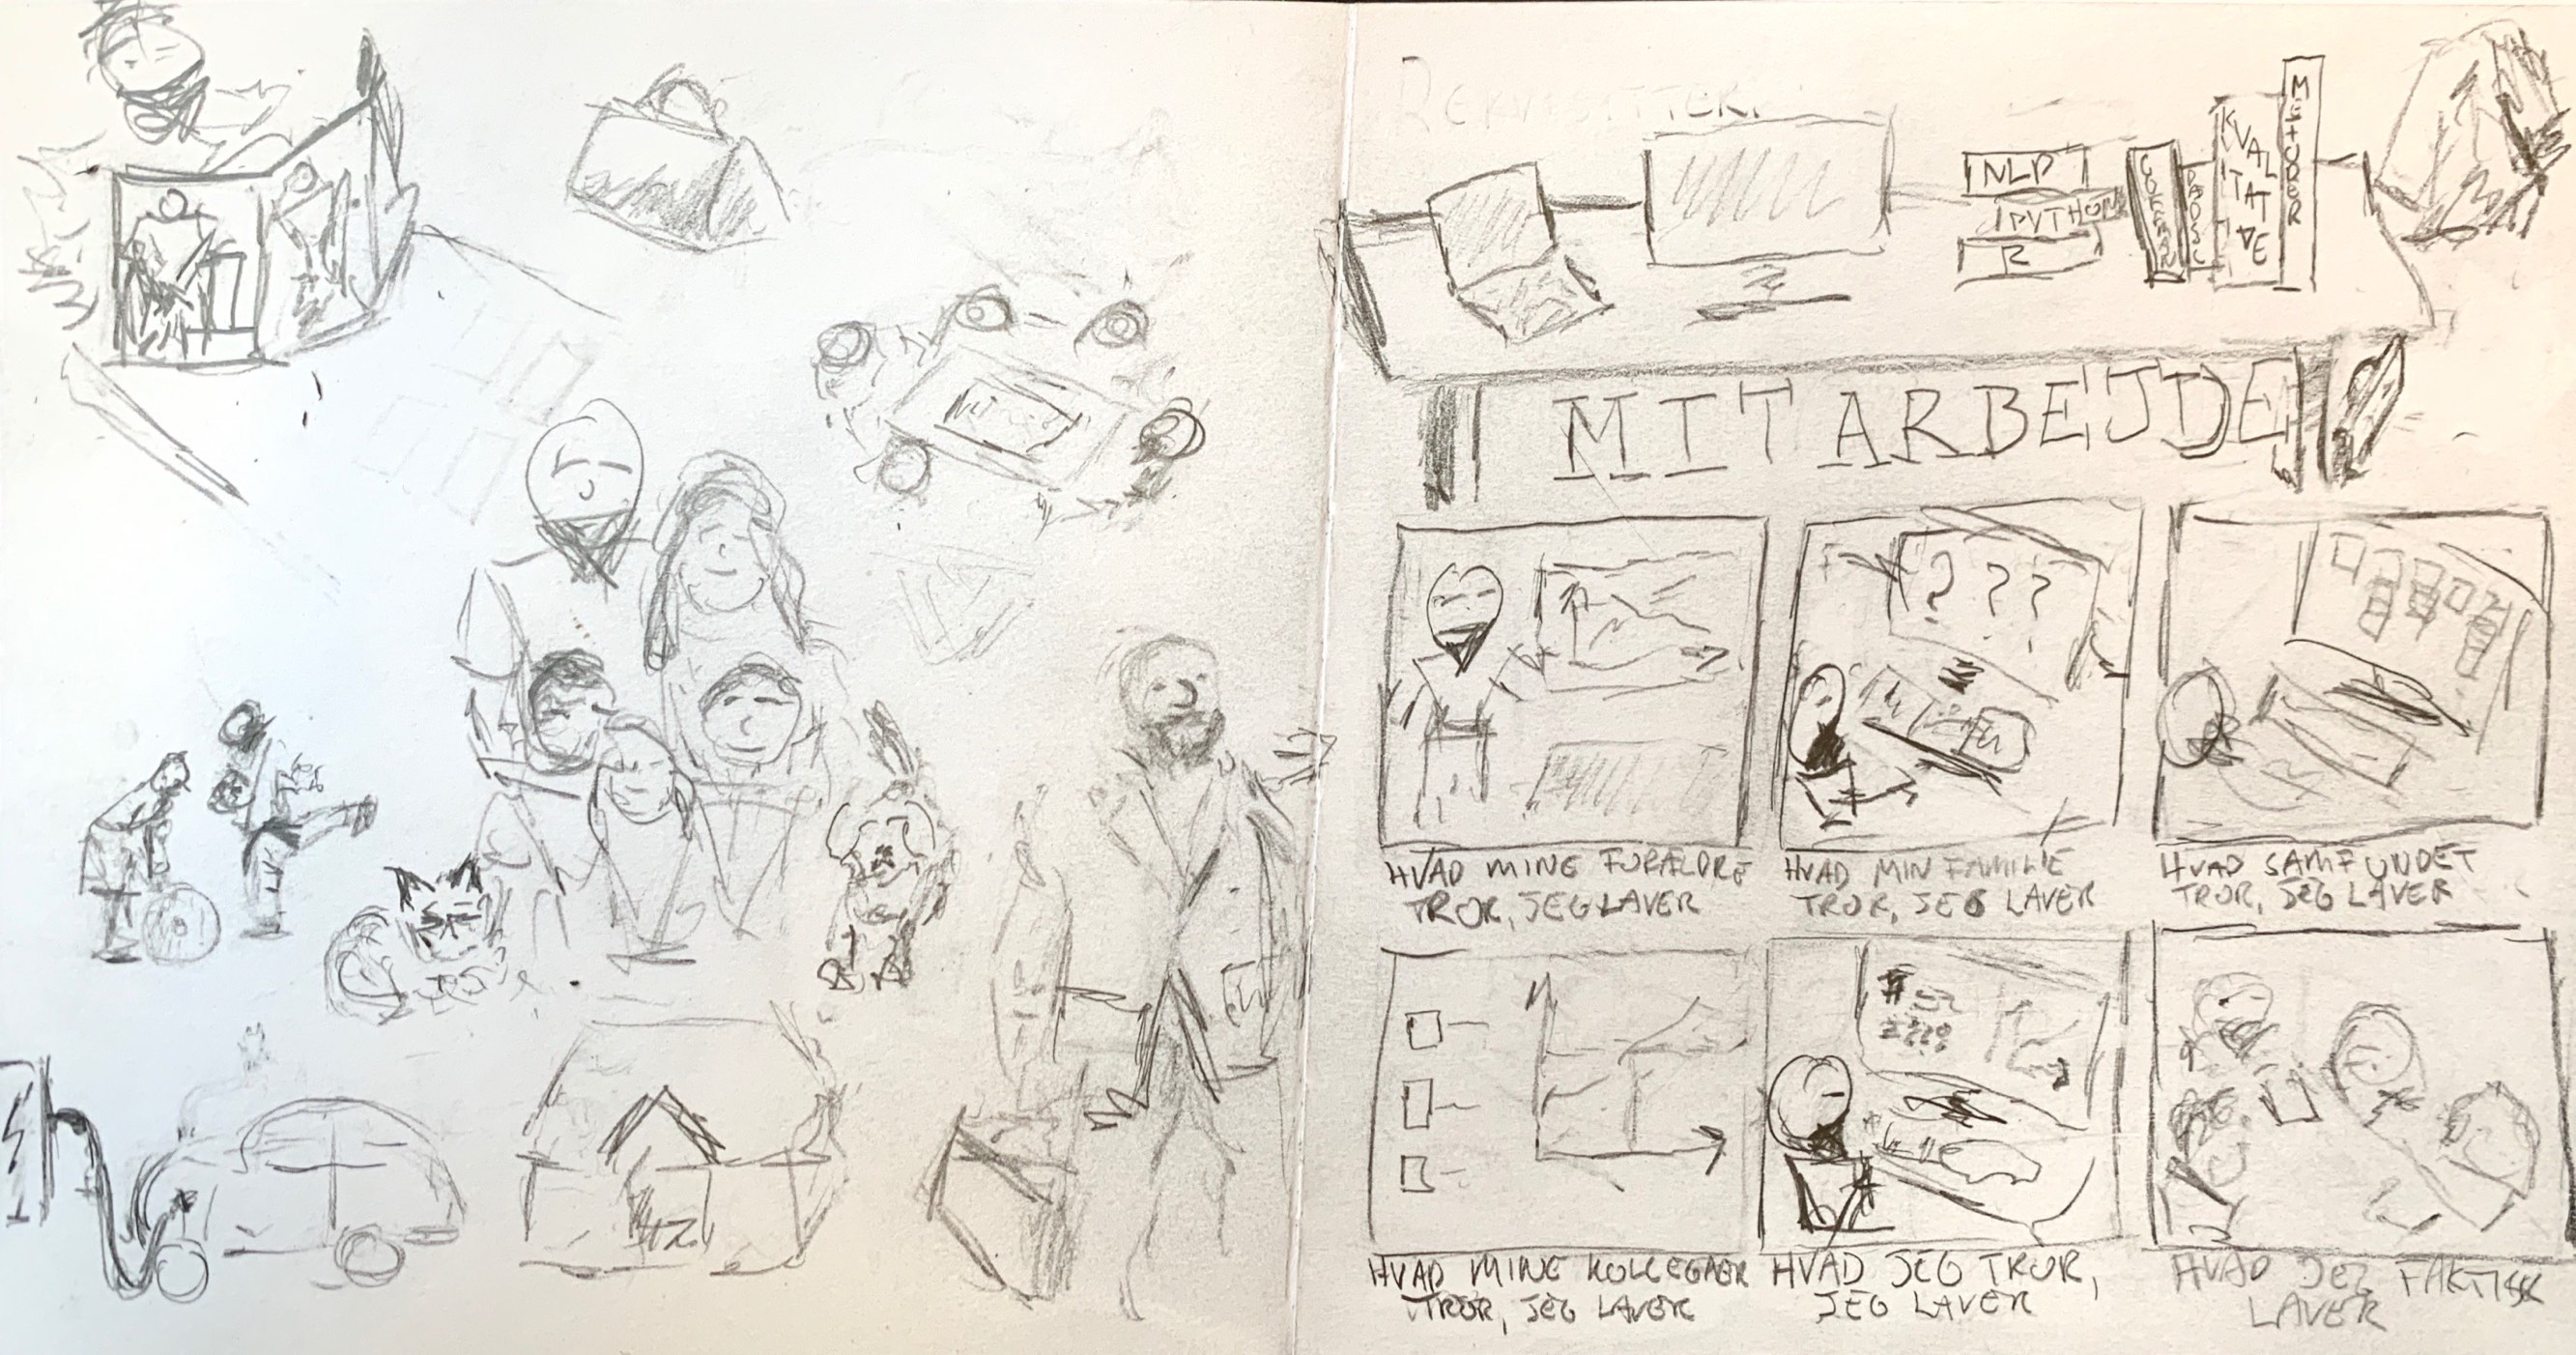 REKVISITTER
NLP
PYTHON
R
KVALITATIVE
METODER
MIT ARBEJDE
? ? ?
HVAD MINE FORÆLDRE
TROR, JEG LAVER
HVAD MIN FAMILIE
TROR, JEG LAVER
HVAD SAMFUNDET
TROR, JEG LAVER
HVAD MINE KOLLEGAER
TROR, JEG LAVER
HVAD JEG TROR,
JEG LAVER
HVAD JEG FAKTISK
LAVER
42